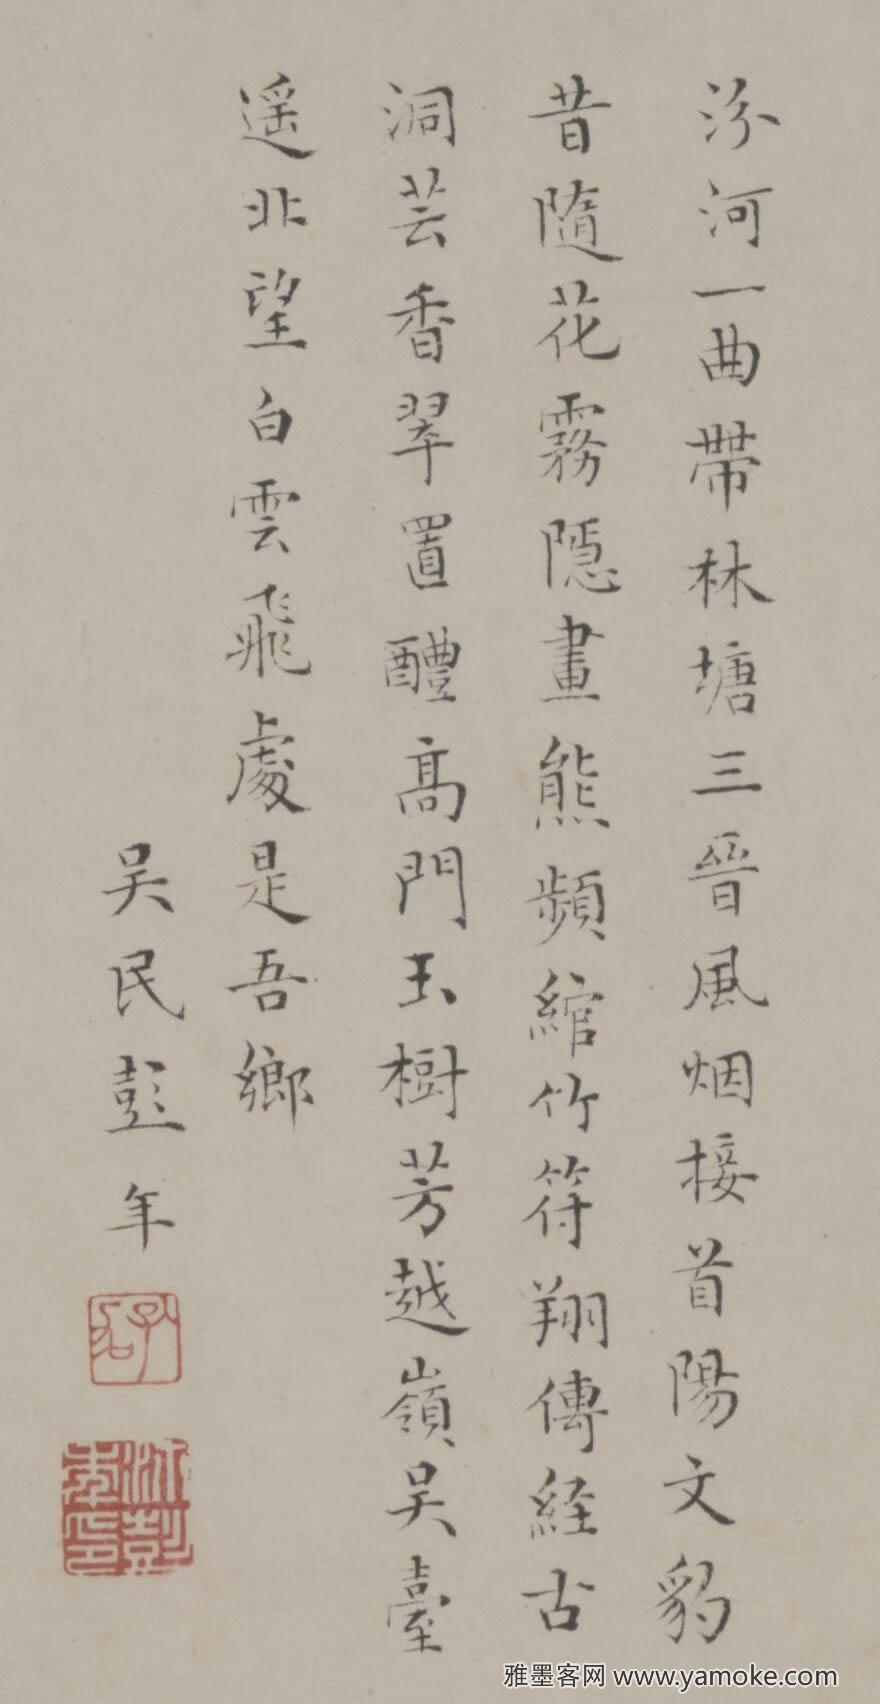 汾河一曲帶林塘三晉風烟接首陽文豹
昔隨花霧隱畫熊頻綰竹符翔傳経古
洞芸香翠置醴高門玉樹芳越嶺吳臺
遥北望白雲飛處是吾鄉
吴民彭年
雅墨客网 www.yamoke.com